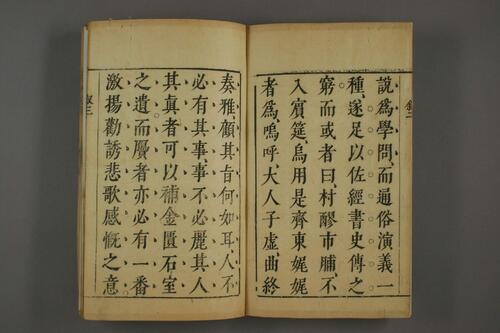 說爲學問、而通俗演義一
種、遂足以佐經書史傳之
窮、而或者曰、村醪市脯、不
入賓筵、烏用是齊東娓娓
者爲、嗚呼、大人子虛、曲終
奏雅、顧其旨何如耳、人不
必有其事、事不必麗其人、
其眞者可以補金匱石室
之遺、而贋者亦必有一番
激揚勸誘、悲歌感慨之意
叙三